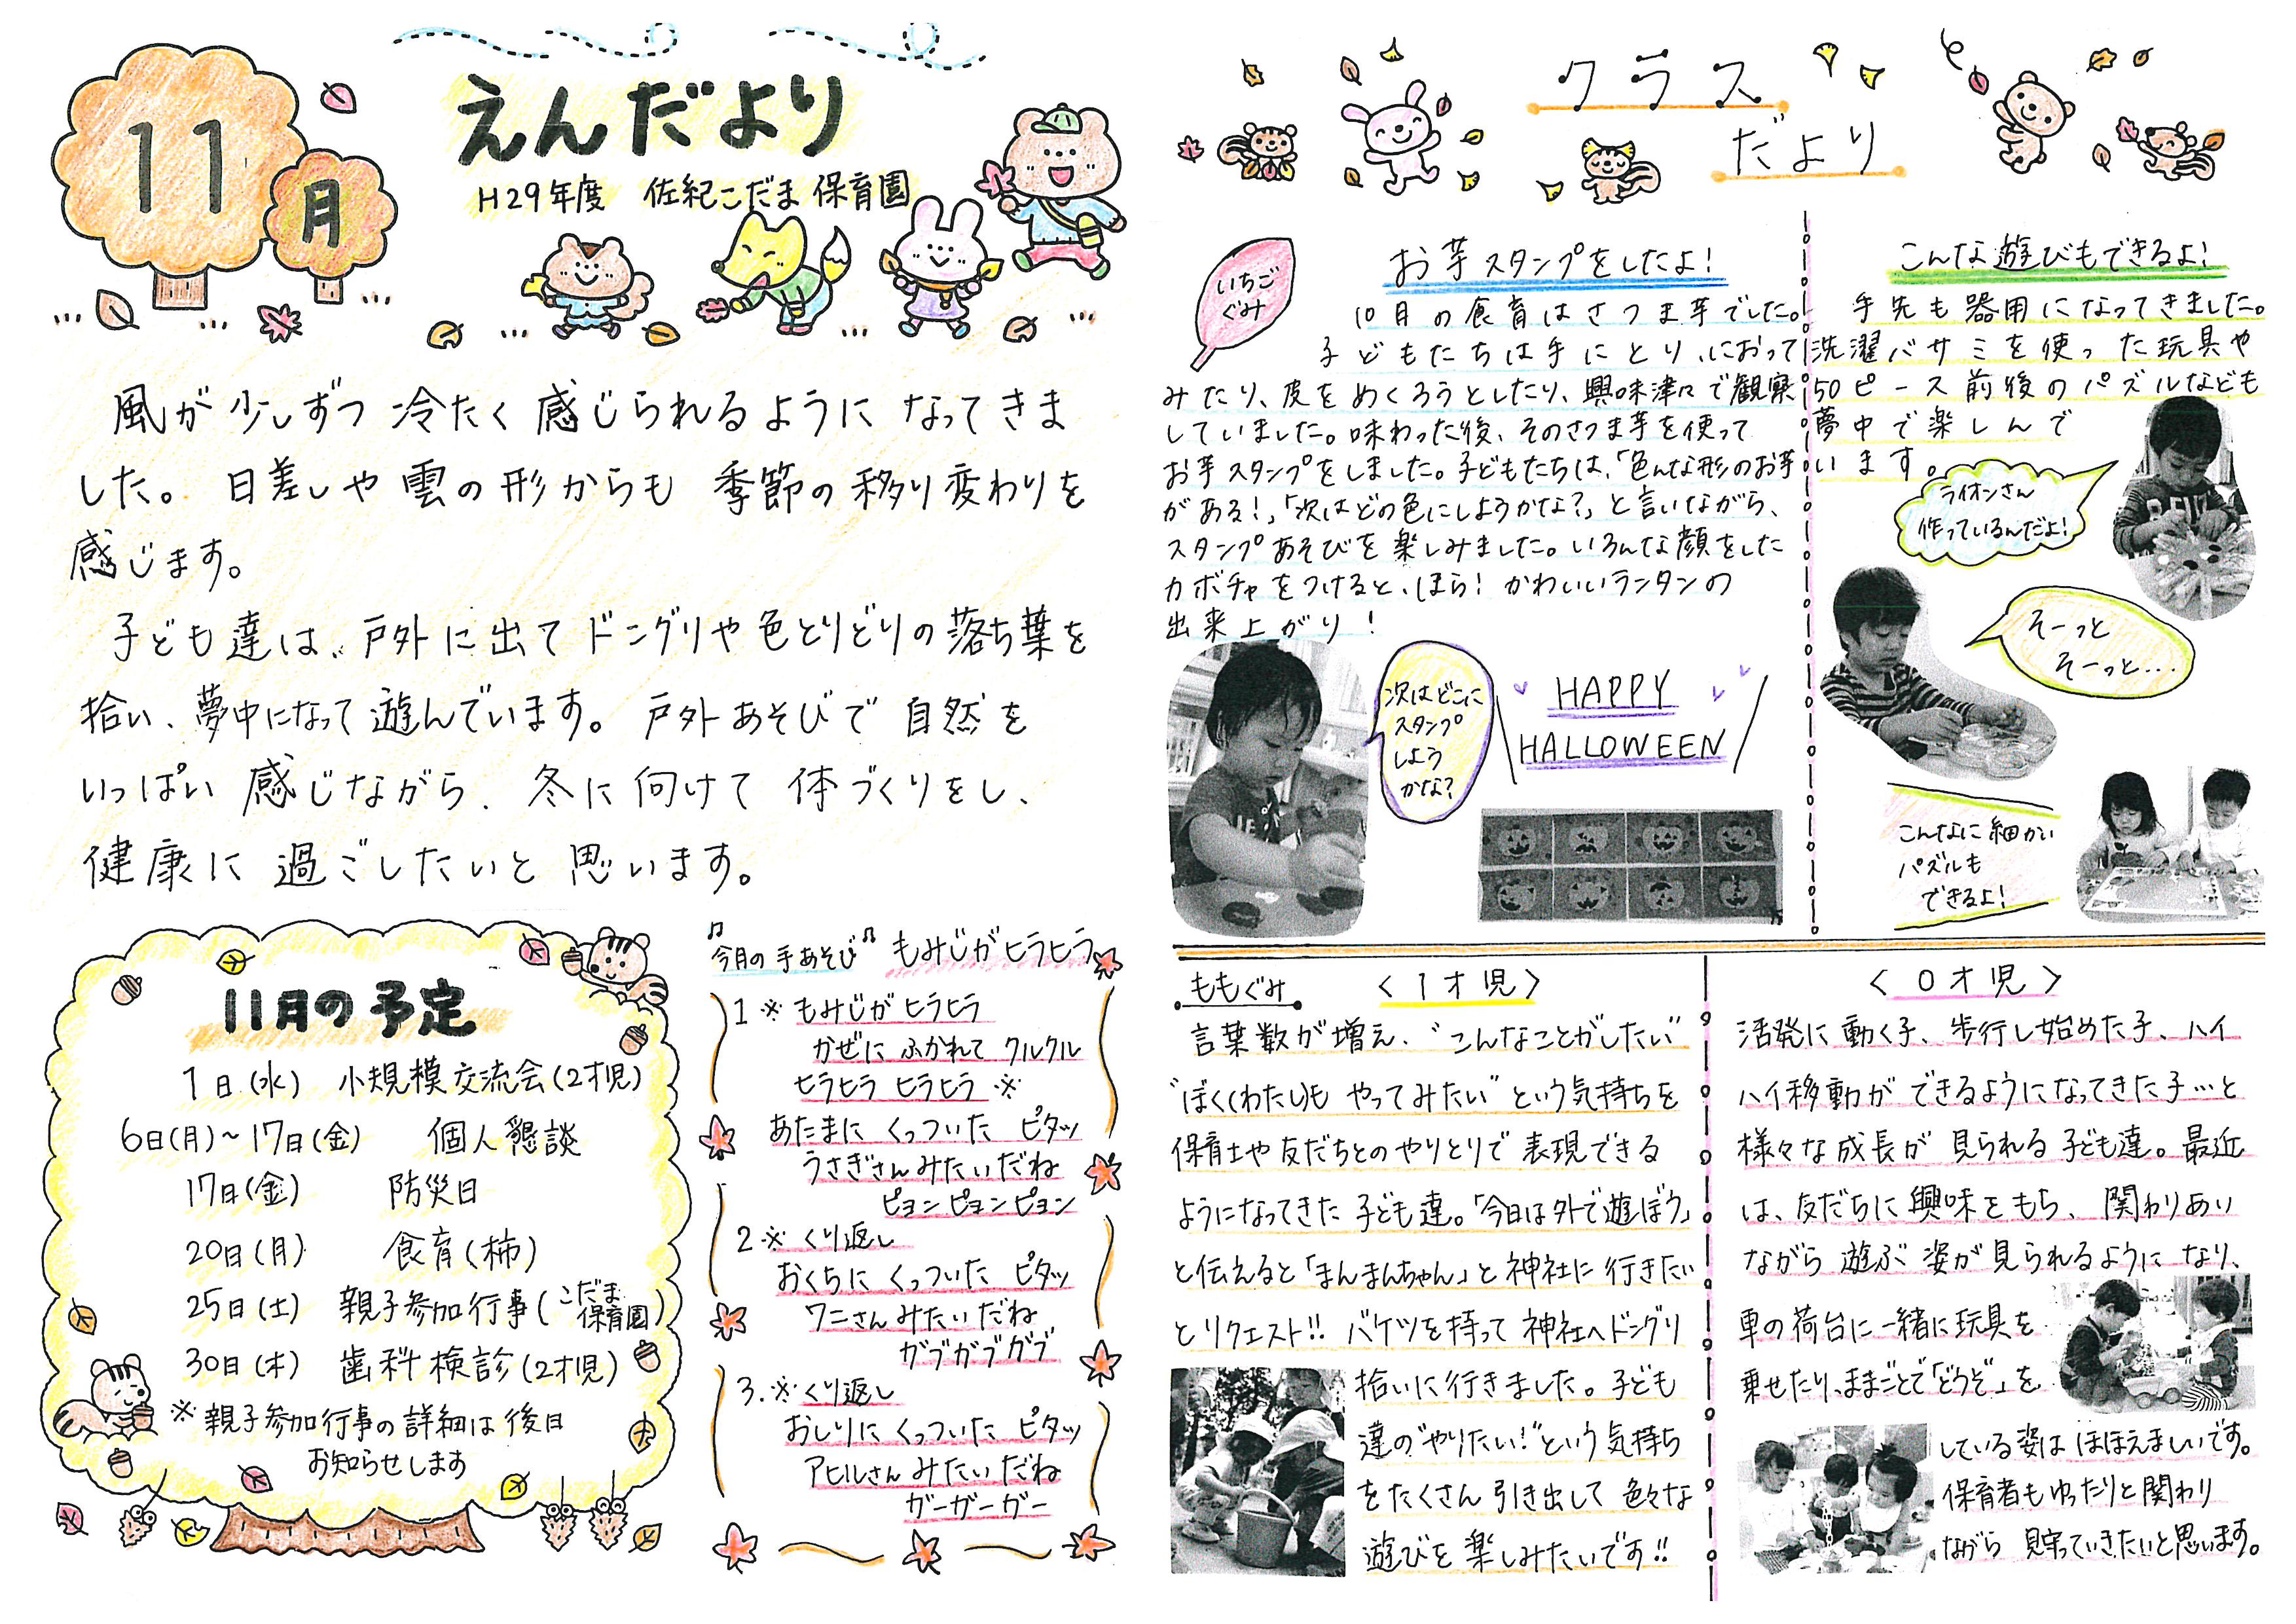 11月
えんだより
H29年度 佐紀こだま保育園
風が少しずつ冷たく感じられるようになってきま
した。日差しや雲の形からも季節の移り変わりを
感じます。
子ども達は、戸外に出てドングリや色とりどりの落ち葉を
拾い、夢中になって遊んでいます。戸外あそびで自然を
いっぱい感じながら、冬に向けて体づくりをし、
健康に過ごしたいと思います。
11月の予定
1日(水) 小規模交流会(2才児)
6日(月)~17日(金) 個人懇談
17日(金) 防災日
20日(月) 食育(柿)
25日(土) 親子参加行事(こだま保育園)
30日(木) 歯科検診(2才児)
※親子参加行事の詳細は後日
お知らせします
♫今月の手あそび♫ もみじがヒラヒラ
1※もみじがヒラヒラ
かぜにふかれてクルクル
ヒラヒラ ヒラヒラ※
あたまにくっついた ピタッ
うさぎさんみたいだね
ピョンピョンピョン
2※くり返し
おくちにくっついた ピタッ
ワニさんみたいだね
ガブガブガブ
3.※くり返し
おしりにくっついた ピタッ
アヒルさんみたいだね
ガーガーガー
クラス
だより
いちご
ぐみ
お芋スタンプをしたよ!
10月の食育はさつま芋でした。
子どもたちは手にとり、におって
みたり、皮をめくろうとしたり、興味津々で観察
していました。味わった後、そのさつま芋を使って
お芋スタンプをしました。子どもたちは、「色んな形のお芋
がある!」「次はどの色にしようかな?」と言いながら、
スタンプあそびを楽しみました。いろんな顔をした
カボチャをつけると、ほら!かわいいランタンの
出来上がり!
次はどこに
スタンプ
しよう
かな?
HAPPY
HALLOWEEN
こんな遊びもできるよ!
手先も器用になってきました。
洗濯バサミを使った玩具や
50ピース前後のパズルなども
夢中で楽しんで
います。
ライオンさん
作っているんだよ!
そーっと
そーっと...
こんなに細かい
パズルも
できるよ!
ももぐみ <1才児>
言葉数が増え、"こんなことがしたい"
"ぼく(わたし)もやってみたい"という気持ちを
保育士や友だちとのやりとりで表現できる
ようになってきた子ども達。「今日は外で遊ぼう」
と伝えると「まんまんちゃん」と神社に行きたい
とリクエスト!!バケツを持って神社へドングリ
拾いに行きました。子ども
達の"やりたい!"という気持ち
をたくさん引き出して色々な
遊びを楽しみたいです!!
<0才児>
活発に動く子、歩行し始めた子、ハイ
ハイ移動ができるようになってきた子…と
様々な成長が見られる子ども達。最近
は、友だちに興味をもち、関わりあい
ながら遊ぶ姿が見られるようになり、
車の荷台に一緒に玩具を
乗せたり、ままごとで「どうぞ」を
している姿はほほえましいです。
保育者もゆったりと関わり
ながら見守っていきたいと思います。